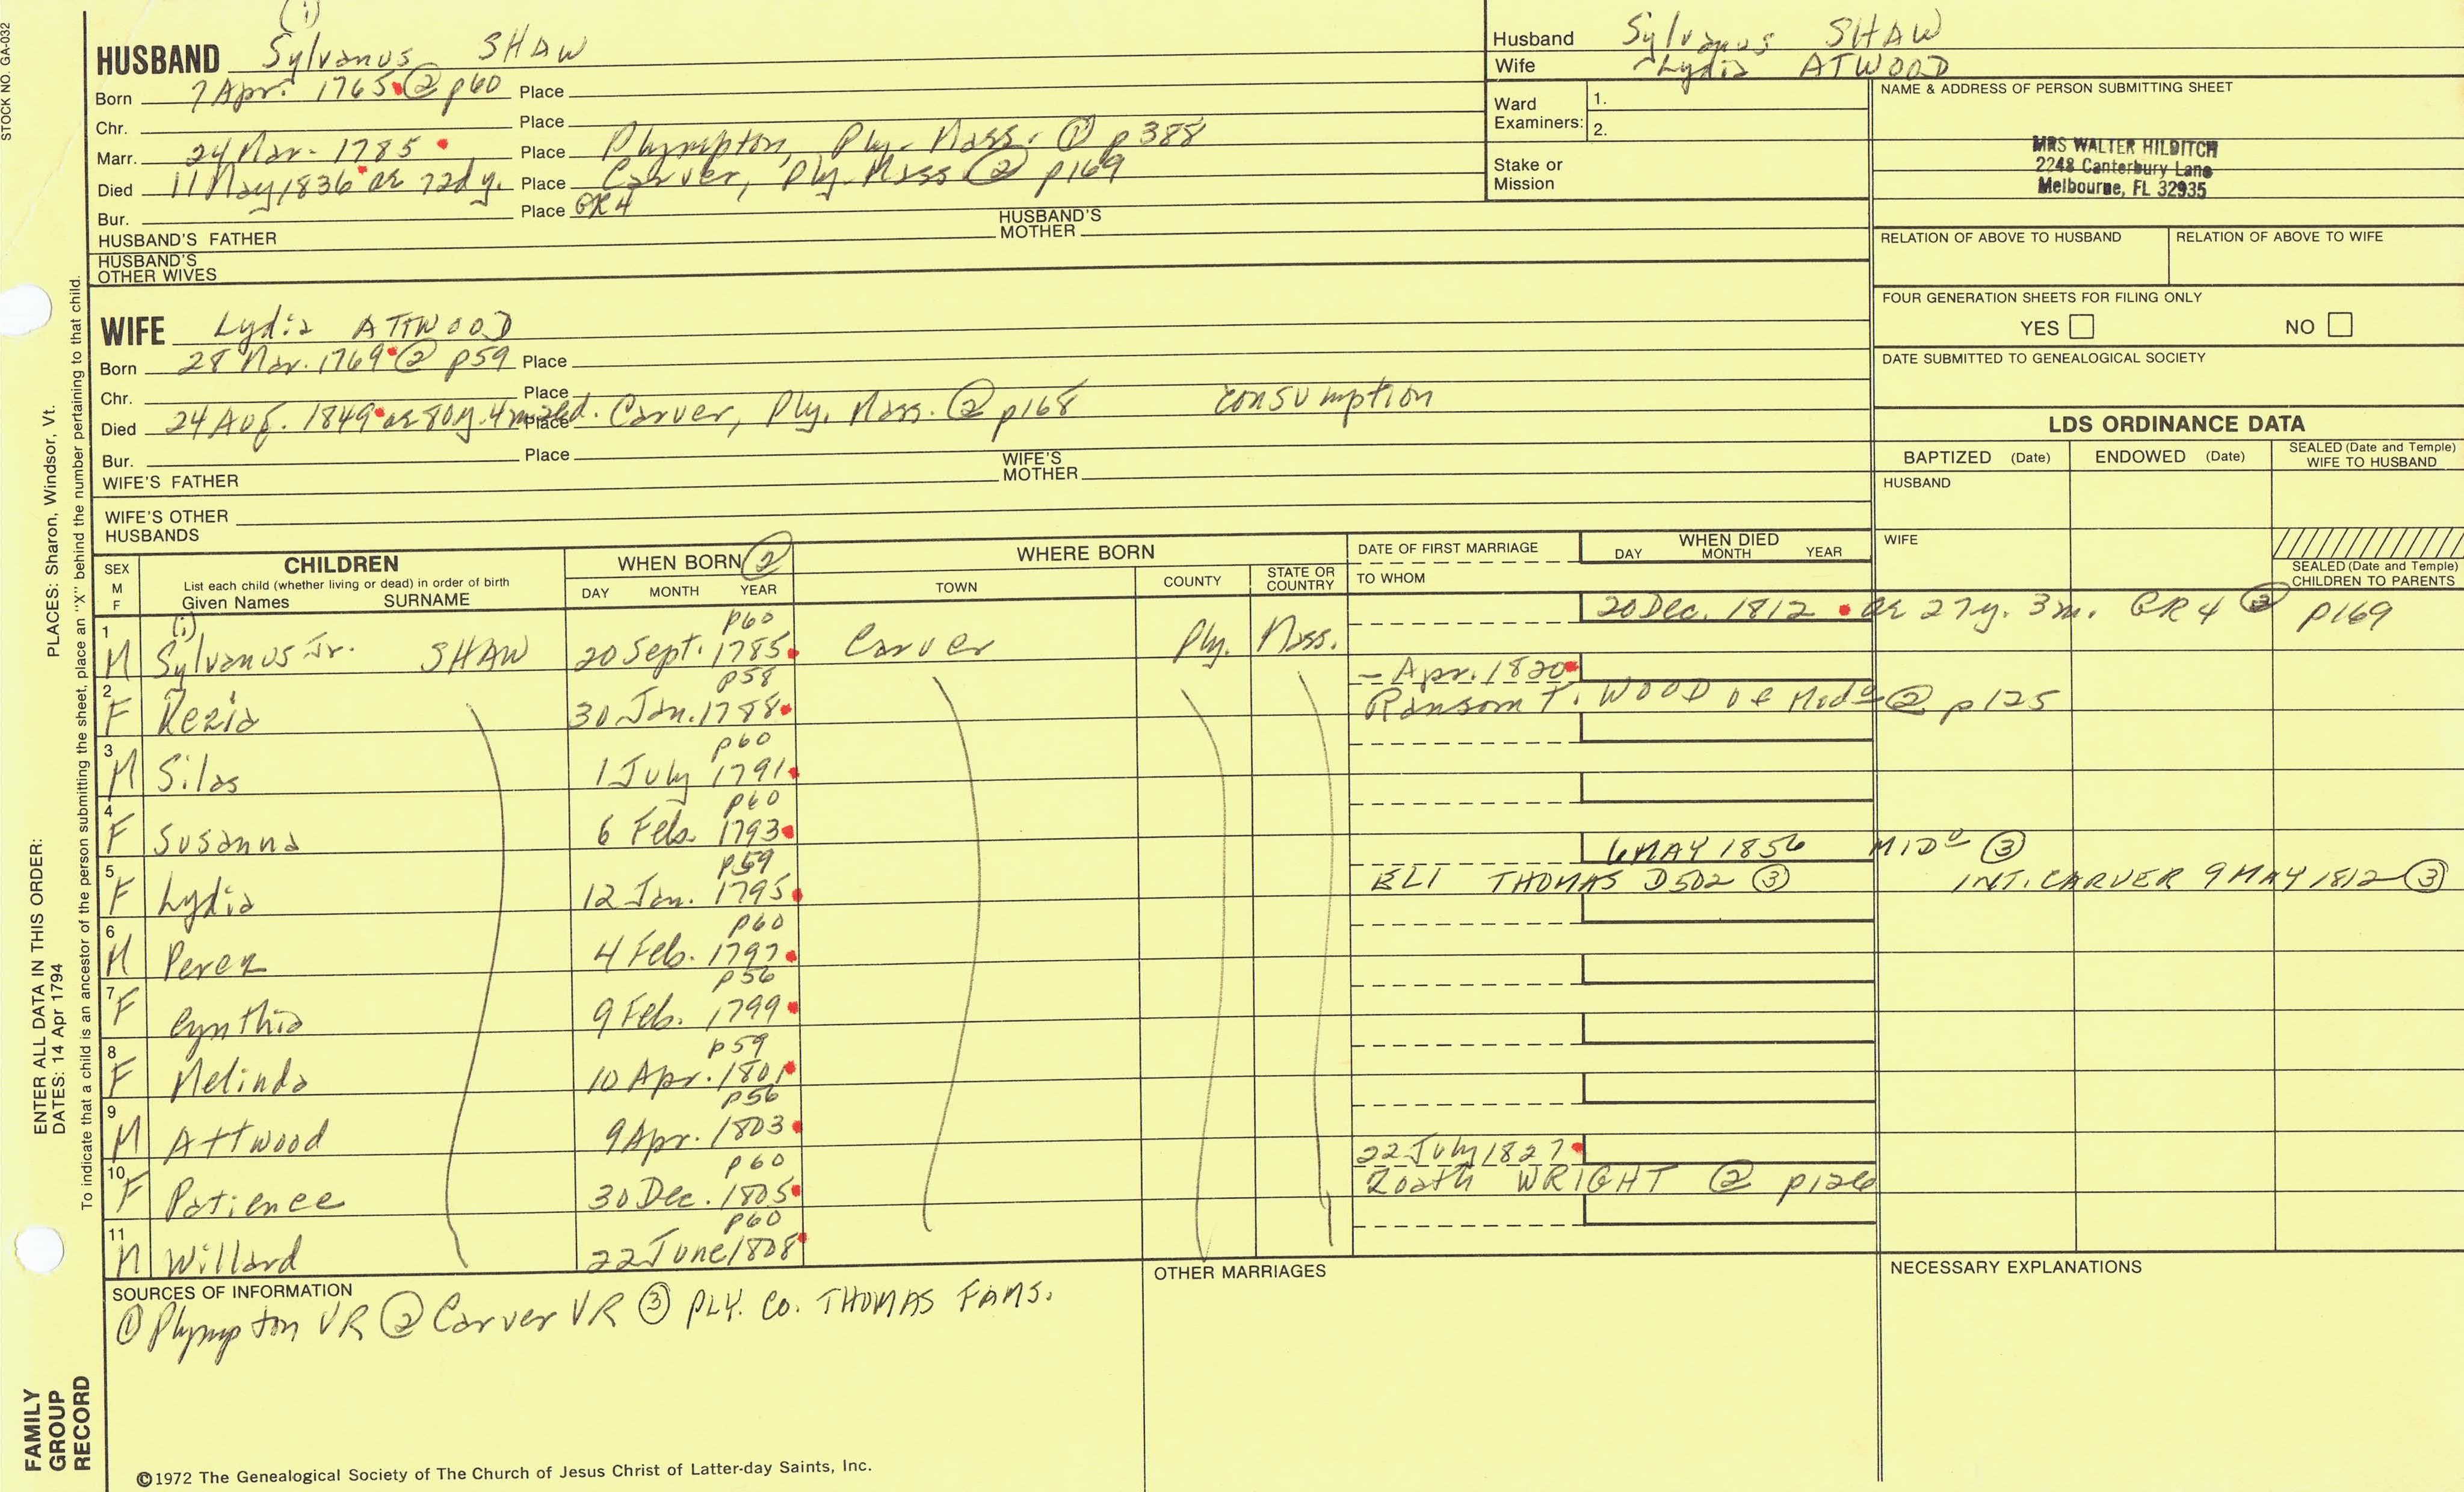 STOCK NO. GA-032
(i)
HUSBAND Sylvanus SHAW
Born 7 Apr. 1765 ② p60 Place
Chr. Place
Marr. 24 Mar. 1785 Place Plympton, Ply. Mass. ① p388
Died 11 May 1836 ae 72d y. Place Carver, Ply. Mass ② p169
Bur. Place GR4
HUSBAND'S FATHER HUSBAND'S MOTHER
HUSBAND'S OTHER WIVES
WIFE Lydia ATTWOOD
Born 28 Mar. 1769 ② p59 Place
Chr. Place
Died 24 Aug. 1849 ae 80y. 4m. Place Carver, Ply. Mass. ② p168 consumption
Bur. Place
WIFE'S FATHER WIFE'S MOTHER
WIFE'S OTHER HUSBANDS
Husband Sylvanus SHAW
Wife Lydia ATWOOD
Ward Examiners: 1.
2.
Stake or Mission
NAME & ADDRESS OF PERSON SUBMITTING SHEET
MRS WALTER HILDITCH
2248 Canterbury Lane
Melbourne, FL 32935
RELATION OF ABOVE TO HUSBAND RELATION OF ABOVE TO WIFE
FOUR GENERATION SHEETS FOR FILING ONLY
YES NO
DATE SUBMITTED TO GENEALOGICAL SOCIETY
LDS ORDINANCE DATA
BAPTIZED (Date) ENDOWED (Date) SEALED (Date and Temple) WIFE TO HUSBAND
HUSBAND
WIFE
SEALED (Date and Temple) CHILDREN TO PARENTS
SEX M F
CHILDREN
List each child (whether living or dead) in order of birth
Given Names SURNAME
WHEN BORN ②
DAY MONTH YEAR
WHERE BORN
TOWN COUNTY STATE OR COUNTRY
DATE OF FIRST MARRIAGE
TO WHOM
WHEN DIED
DAY MONTH YEAR
p60 20 Dec. 1812 ae 27y. 3m. GR4 ② p169
(i)
1 M Sylvanus Jr. SHAW 20 Sept. 1785 Carver Ply. Mass.
p58 - Apr. 1820
2 F Kezia 30 Jan. 1788 Ransom T. WOOD of Mido ② p125
p60
3 M Silas 1 July 1791
p60
4 F Susanna 6 Feb. 1793
p59 6 MAY 1856 MIDO ③
5 F Lydia 12 Jan. 1795 ELI THOMAS D502 ③ INT. CARVER 9 MAY 1812 ③
p60
6 M Perez 4 Feb. 1797
p56
7 F Cynthia 9 Feb. 1799
p59
8 F Melinda 10 Apr. 1801
p56
9 M Attwood 9 Apr. 1803
p60 22 July 1827
10 F Patience 30 Dec. 1805 Zoath WRIGHT ② p126
p60
11 M Willard 22 June 1808
SOURCES OF INFORMATION
① Plympton VR ② Carver VR ③ PLY. CO. THOMAS FAMS.
OTHER MARRIAGES
NECESSARY EXPLANATIONS
©1972 The Genealogical Society of The Church of Jesus Christ of Latter-day Saints, Inc.
PLACES: Sharon, Windsor, Vt.
ENTER ALL DATA IN THIS ORDER:
DATES: 14 Apr 1794
To indicate that a child is an ancestor of the person submitting the sheet, place an "X" behind the number pertaining to that child.
FAMILY
GROUP
RECORD